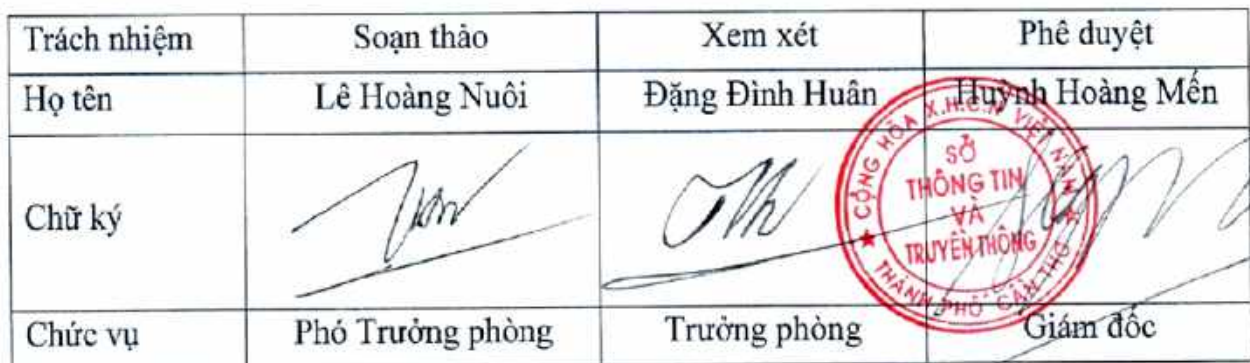 Trách nhiệm Soạn thảo Xem xét Phê duyệt
Họ tên Lê Hoàng Nuôi Đặng Đình Huân Huỳnh Hoàng Mến
Chữ ký
CỘNG HÒA X.H.C.N VIỆT NAM
SỞ
THÔNG TIN
VÀ
TRUYỀN THÔNG
THÀNH PHỐ CẦN THƠ
Chức vụ Phó Trưởng phòng Trưởng phòng Giám đốc